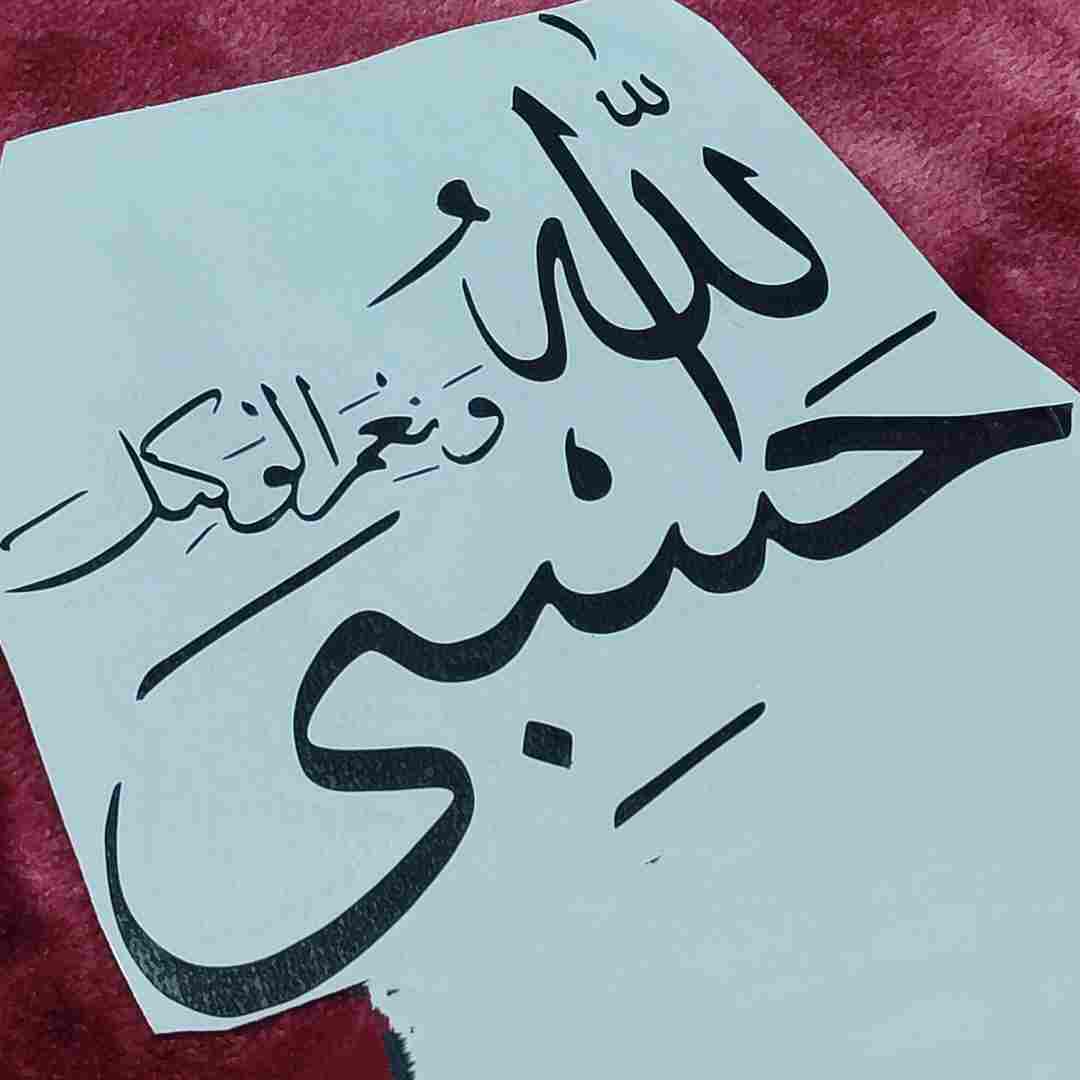 حَسِبىَ
اللّٰهُ
وَنِعِمَ الوَكِيلَ